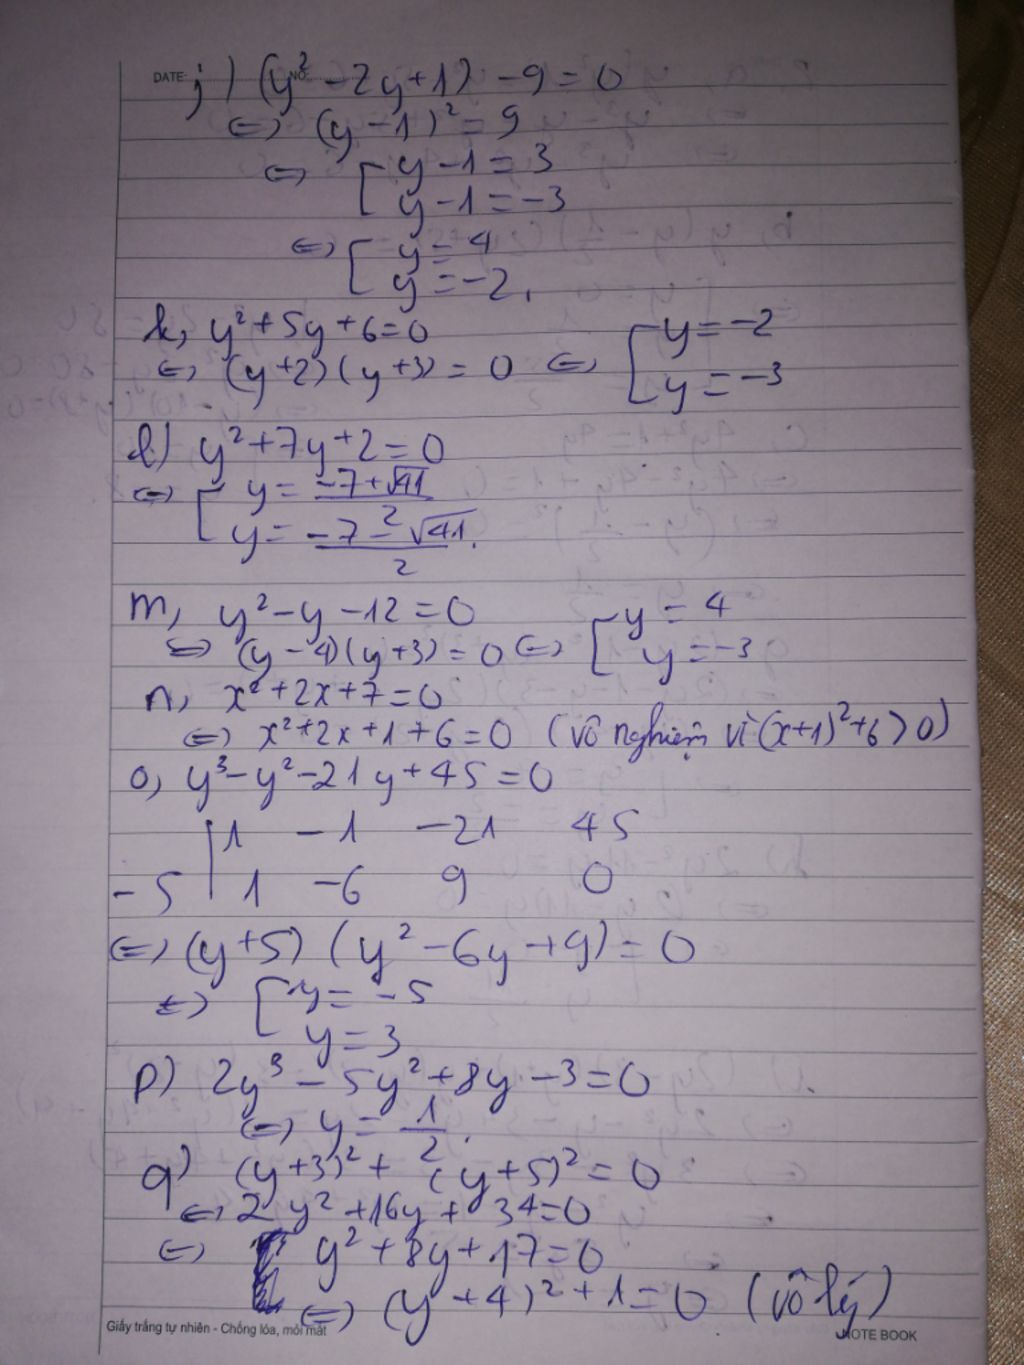 DATE: NO:
j) (y² - 2y + 1) - 9 = 0
⇔ (y - 1)² = 9
⇔ [ y - 1 = 3
y - 1 = -3
⇔ [ y = 4
y = -2.
k, y² + 5y + 6 = 0
⇔ (y+2)(y+3) = 0 ⇔ [ y = -2
y = -3
l) y² + 7y + 2 = 0
⇔ [ y = (-7 + √41)/2
y = (-7 - √41)/2.
m, y² - y - 12 = 0
⇔ (y - 4)(y + 3) = 0 ⇔ [ y = 4
y = -3
n, x² + 2x + 7 = 0
⇔ x² + 2x + 1 + 6 = 0 (vô nghiệm vì (x+1)² + 6 > 0)
o, y³ - y² - 21y + 45 = 0
| 1 -1 -21 45
-5 | 1 -6 9 0
⇔ (y+5) (y² - 6y + 9) = 0
⇔ [ y = -5
y = 3
p) 2y³ - 5y² + 8y - 3 = 0
⇔ y = 1/2.
q) (y+3)² + (y+5)² = 0
⇔ 2y² + 16y + 34 = 0
⇔ y² + 8y + 17 = 0
⇔ (y + 4)² + 1 = 0 (vô lý)
Giấy trắng tự nhiên - Chống lóa, mỏi mắt
NOTE BOOK